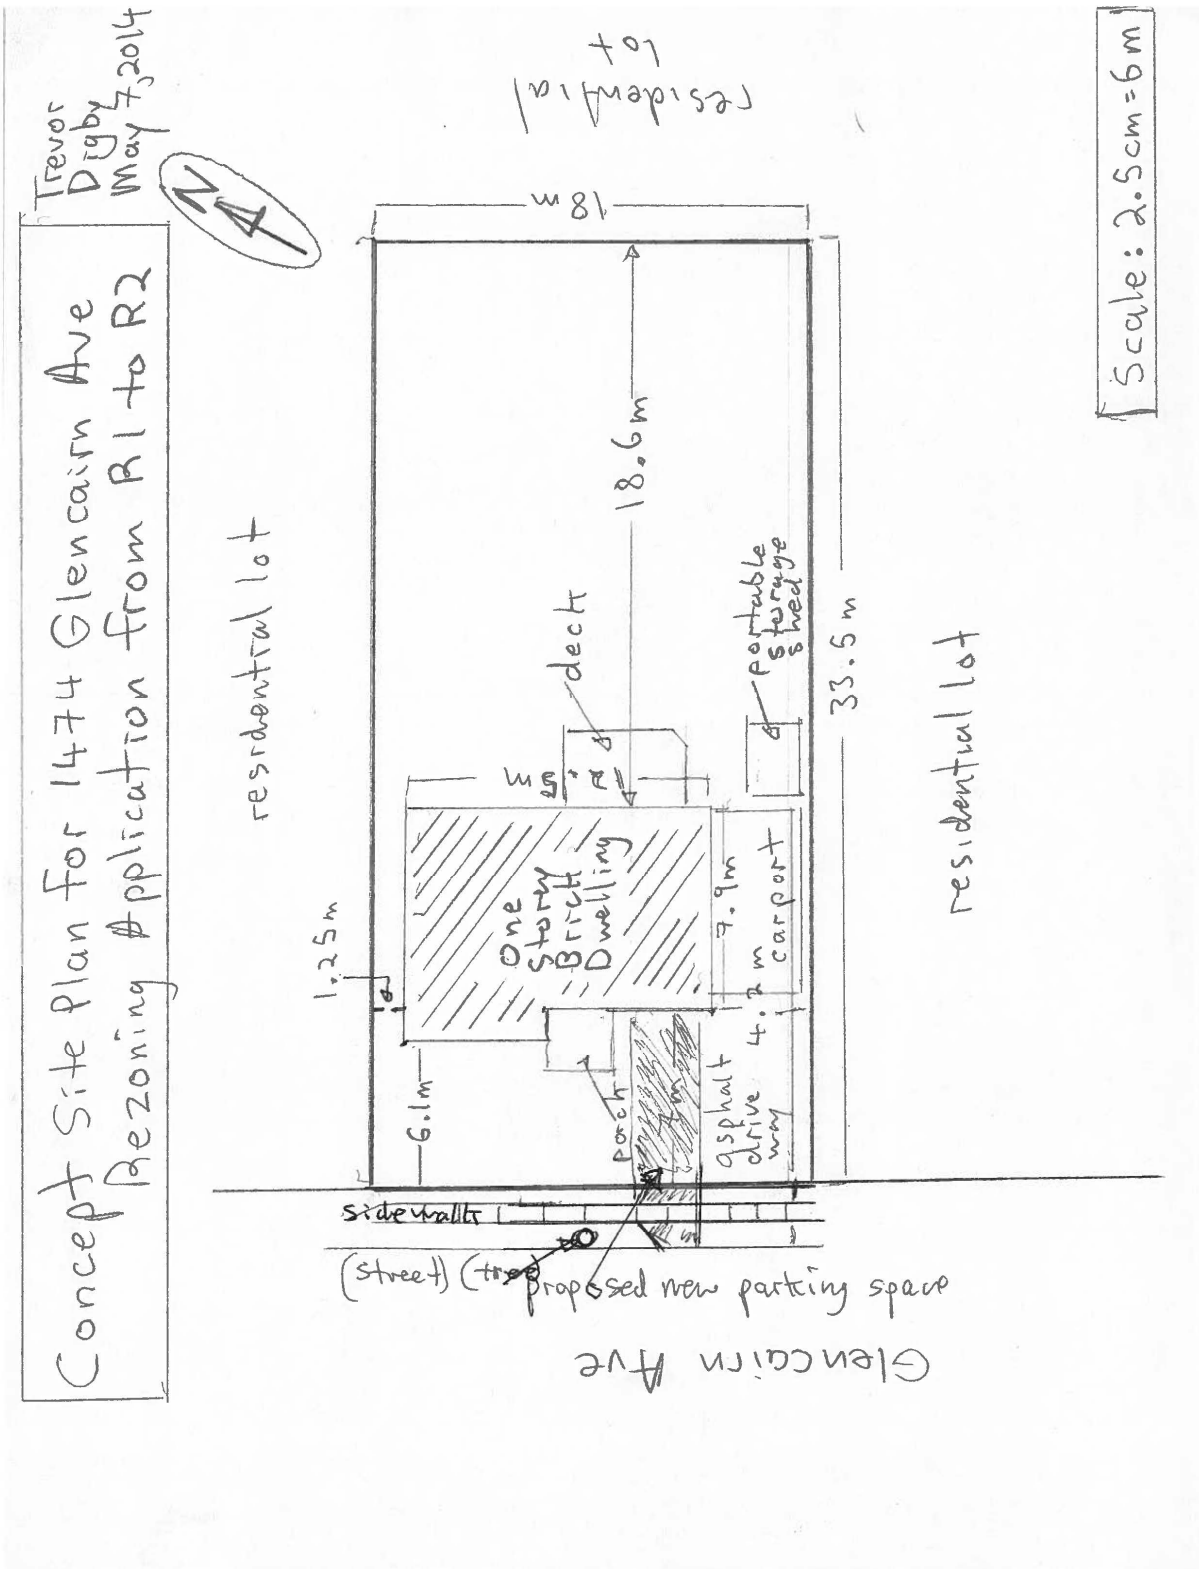 Concept Site Plan for 1474 Glencairn Ave
Rezoning Application from R1 to R2
Trevor
Digby
May 7, 2014
N
residential lot
residential
lot
18m
1.25m
18.6m
deck
portable
storage
shed
33.5m
One
Storey
Brick
Dwelling
7.9m
4.2m
carport
6.1m
porch
asphalt
drive
way
residential lot
sidewalk
(street) (tree)
proposed new parking space
Glencairn Ave
Scale: 2.5cm=6m